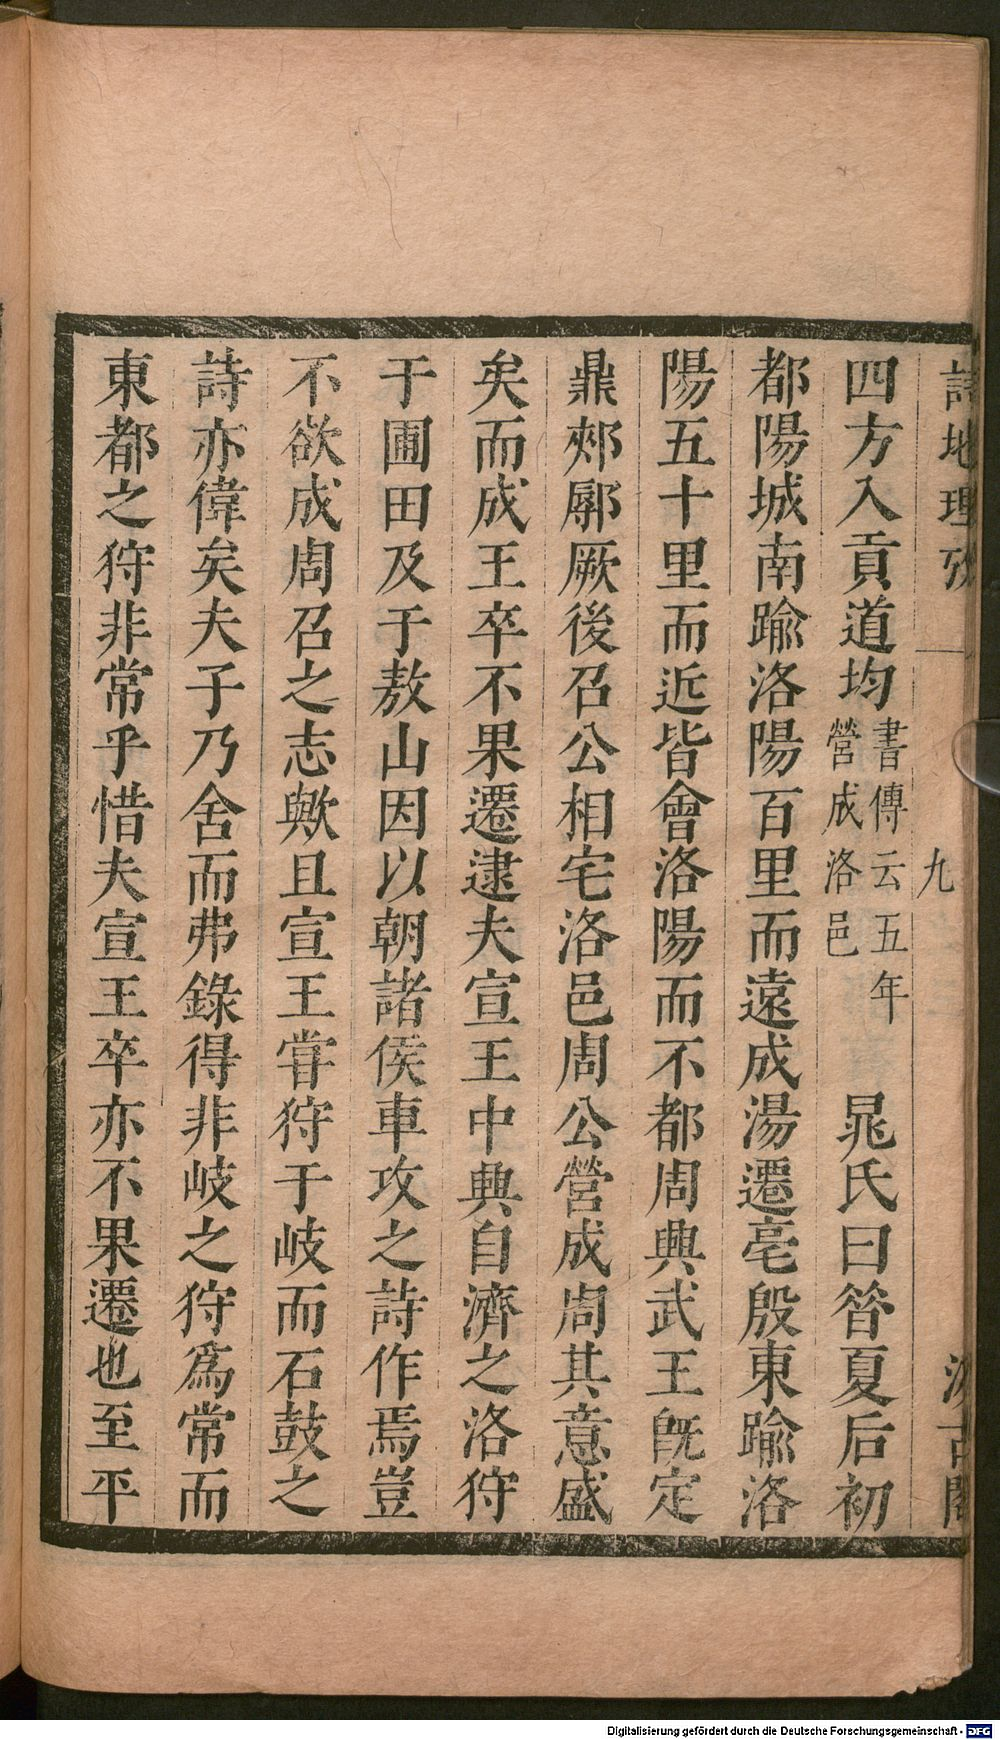 詩地理攷
九
汲古閣
四方入貢道均書傳云五年營成洛邑 晁氏曰昝夏后初
都陽城南踰洛陽百里而遠成湯遷亳殷東踰洛
陽五十里而近皆會洛陽而不都周興武王旣定
鼎郟鄏厥後召公相宅洛邑周公營成周其意盛
矣而成王卒不果遷逮夫宣王中興自濟之洛狩
于圃田及于敖山因以朝諸侯車攻之詩作焉豈
不欲成周召之志歟且宣王甞狩于岐而石鼓之
詩亦偉矣夫子乃舍而弗錄得非岐之狩爲常而
東都之狩非常乎惜夫宣王卒亦不果遷也至平
Digitalisierung gefördert durch die Deutsche Forschungsgemeinschaft - DFG